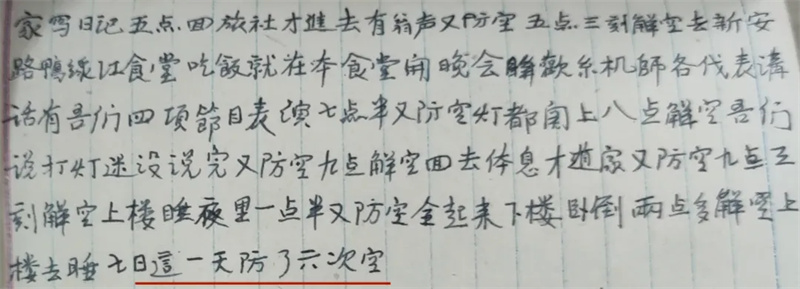 家写日记五点回旅社才进去有翁声又防空五点三刻解空去新安
路鴨绿江食堂吃飯就在本食堂開晚会联歡糸机師各代表講
话有吾们四项節目表演七点半又防空灯都関上八点解空吾们
说打灯迷没说完又防空九点解空回去体息才進家又防空九点三
刻解空上楼睡夜里一点半又防空全起来下楼卧倒两点多解空上
楼去睡七日這一天防了六次空